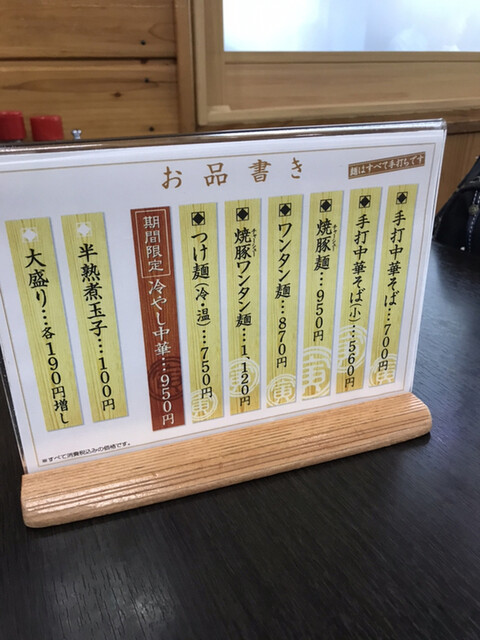 お品書き
麺はすべて手打ちです
手打中華そば…700円
手打中華そば(小)…560円
焼豚麺…950円
チャーシュー
ワンタン麺…870円
焼豚ワンタン麺…1,120円
チャーシュー
つけ麺(冷・温)…750円
期間限定 冷やし中華…950円
半熟煮玉子…100円
大盛り…各190円増し
※すべて消費税込みの価格です。